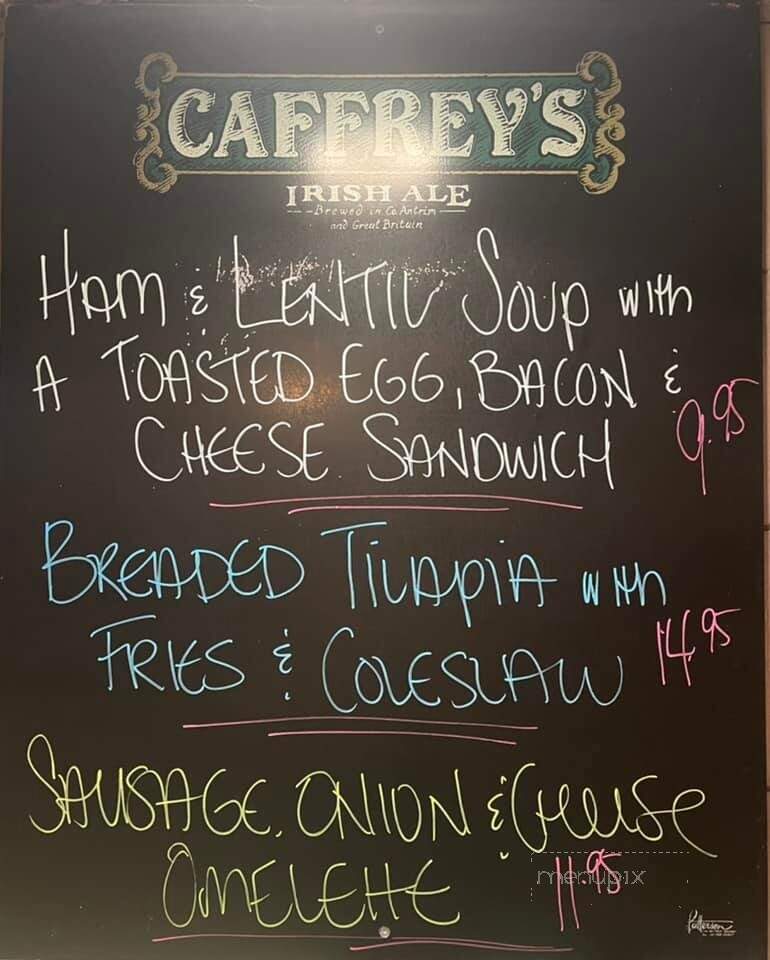 CAFFREY'S
IRISH ALE
Brewed in Co. Antrim
and Great Britain
HAM & LENTIL SOUP with
A TOASTED EGG, BACON &
CHEESE SANDWICH 9.95
BREADED TILAPIA with
FRIES & COLESLAW 14.95
SAUSAGE, ONION & CHEESE
OMELETTE 11.95
menupix
Patterson